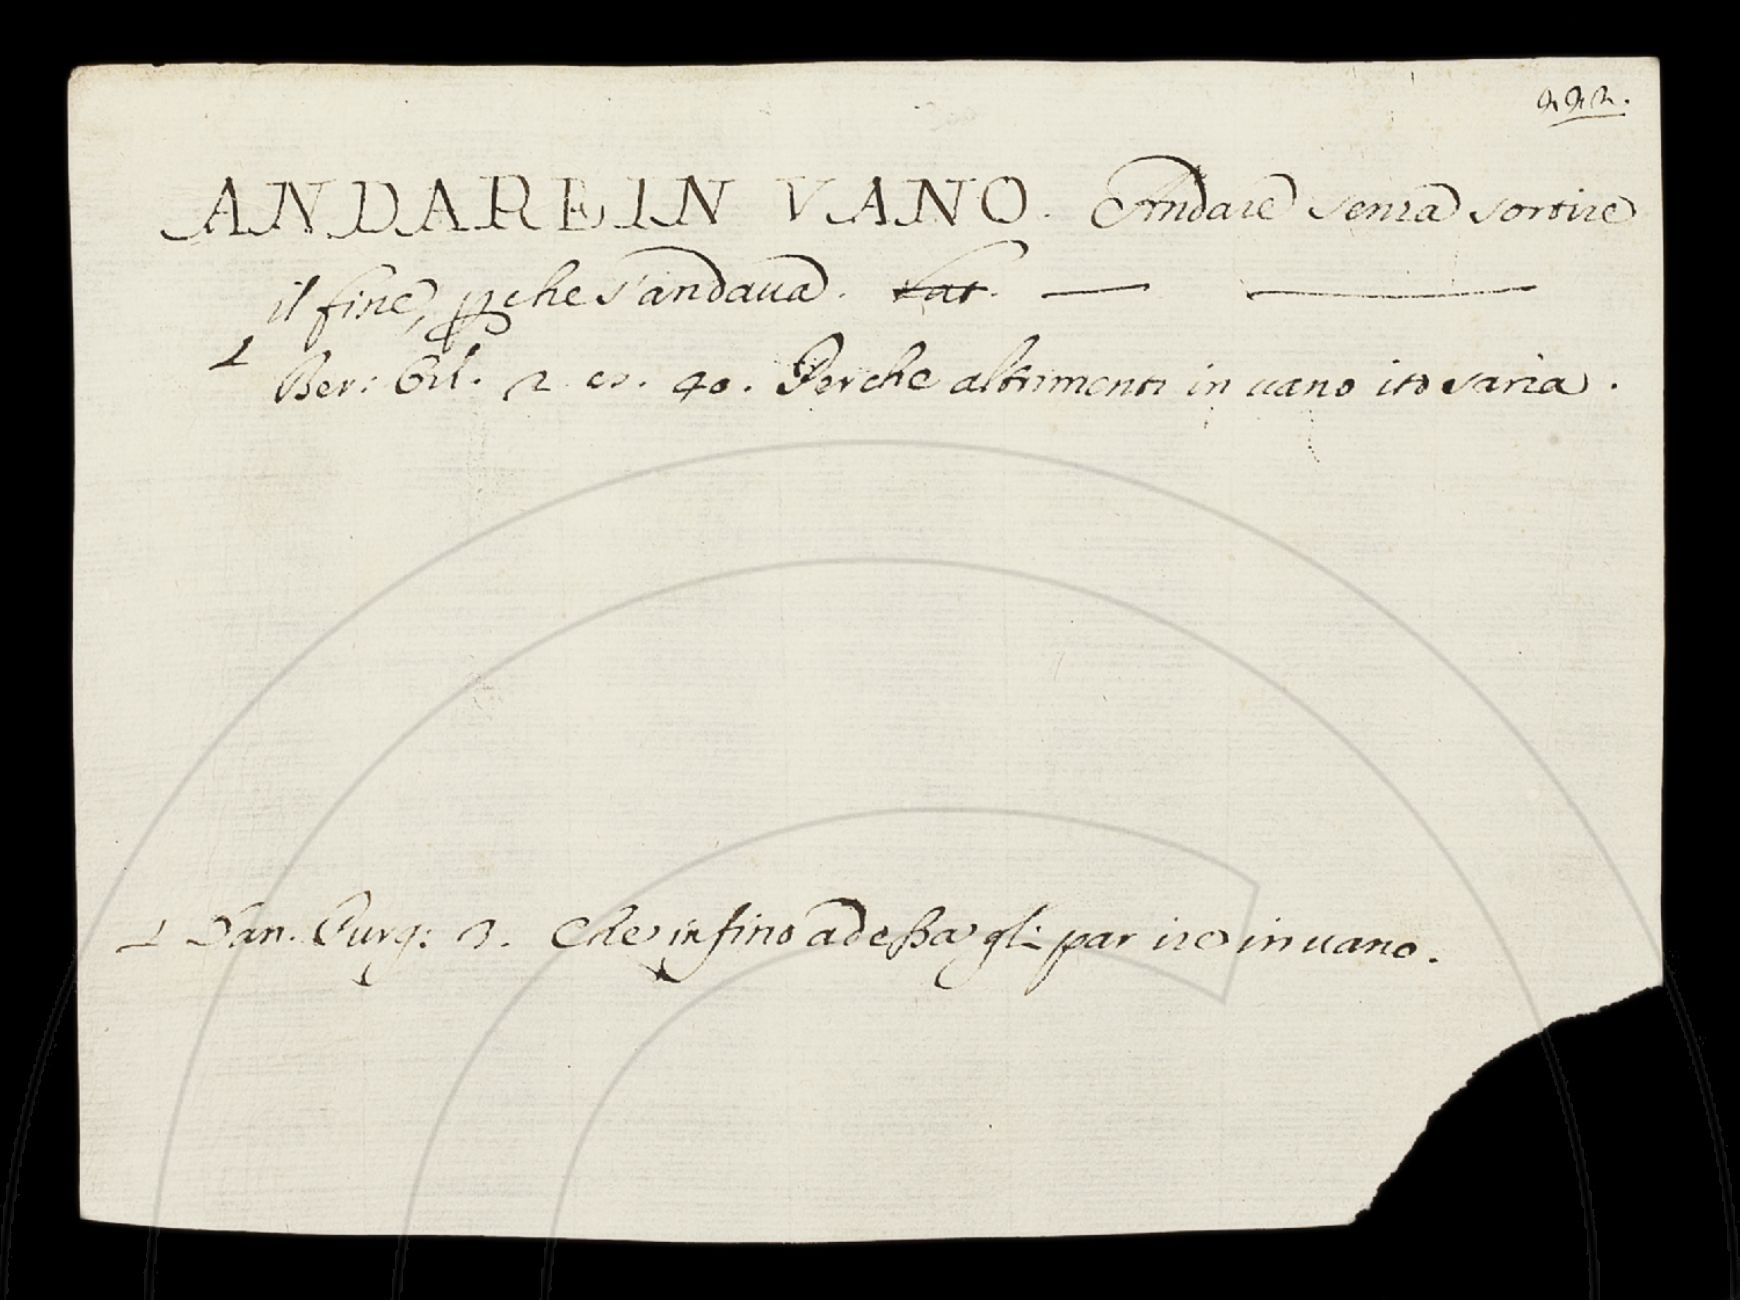 ANDARE IN VANO. Andare senza sortire
il fine, pche s'andaua. Lat.
Ber: Orl. 2 20. 40. Perche altrimenti in uano ito saria.
Dan. Purg: 3. Che infino ad essa gli par ire in uano.